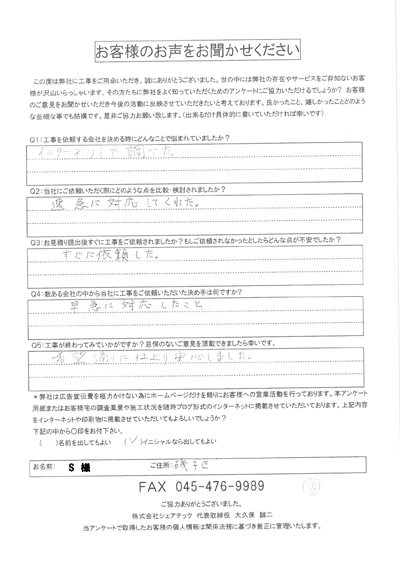 お客様のお声をお聞かせください
この度は弊社に工事をご用命いただき、誠にありがとうございました。世の中には弊社の存在やサービスをご存知ないお客
様が沢山いらっしゃいます。その方たちに弊社をよく知っていただくためのアンケートにご協力いただけるでしょうか？ お客様
のご意見をお聞かせいただき今後の活動に反映させていただきたいと考えております。良かったこと、嬉しかったことどのよう
な些細な事でも結構です。是非ご協力お願い致します。（出来るだけ具体的に書いていただければ幸いです）
Q1：工事を依頼する会社を決める時にどんなことで悩まれていましたか？
インターネットで調べた。
Q2：当社にご依頼いただく際にどのような点を比較・検討されましたか？
早急に対応してくれた。
Q3：お見積り提出後すぐに工事をご依頼されましたか？もしご依頼されなかったとしたらどんな点が不安でしたか？
すぐに依頼した。
Q4：数ある会社の中から当社に工事をご依頼いただいた決め手は何ですか？
早急に対応したこと
Q5：工事が終わってみていかがですか？忌憚のないご意見を頂戴できましたら幸いです。
希望通りに仕上り安心しました。
＊弊社は広告宣伝費を極力かけない為にホームページだけを頼りにお客様への営業活動を行っております。本アンケート
用紙またはお客様宅の調査風景や施工状況を随時ブログ形式のインターネットに掲載させていただいております。上記内容
をインターネットや印刷物に掲載させていただいてもよろしいでしょうか？
下記の中から〇印をお付下さい。
（ ）名前を出してもよい （✓）イニシャルなら出してもよい
お名前： S 様 ご住所： 磯子区
FAX 045-476-9989
ご協力ありがとうございました。
株式会社シェアテック 代表取締役 大久保 誠二
当アンケートで取得したお客様の個人情報は関係法規に基づき厳正に管理いたします。